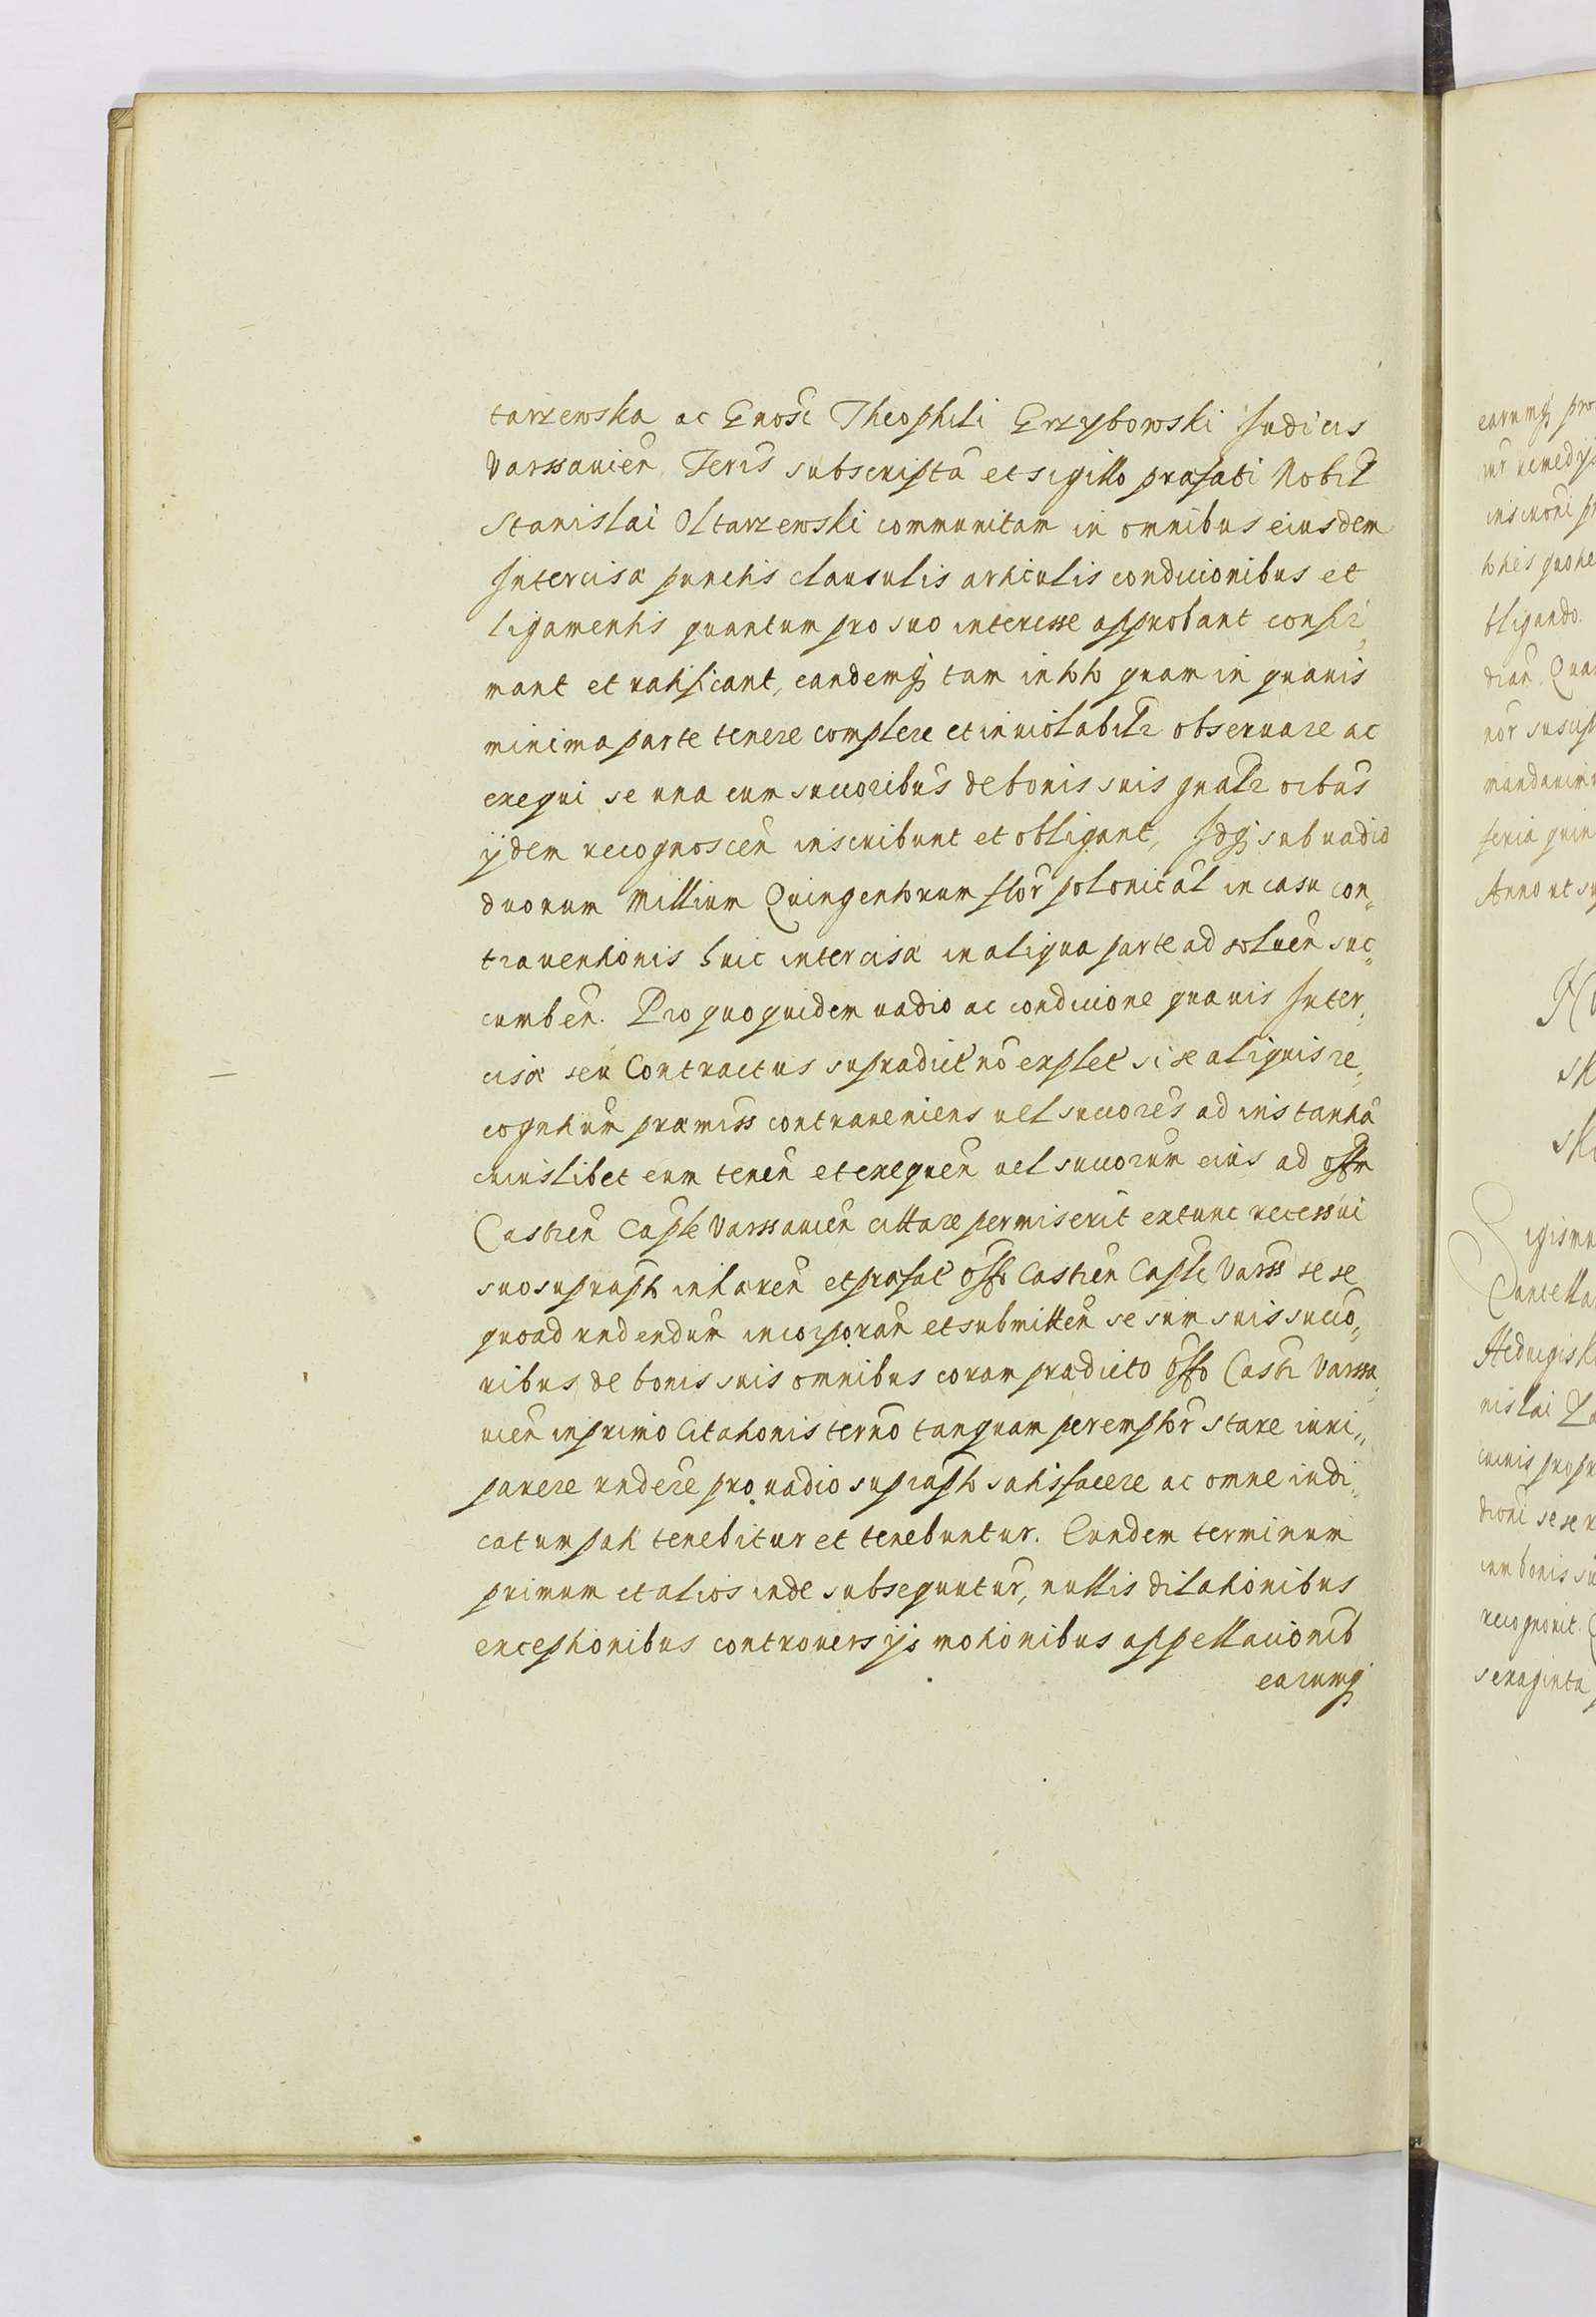 tarzewska ac Gnosi Theophili Grzybowski Judicis
Varssauien Teris subscripta et sigillo præfati Nobil
Stanislai Oltarzewski communitam in omnibus eiusdem
Intercisæ punctis clausulis articulis condicionibus et
ligamentis quantum pro suo interesse approbant confir„
mant et ratificant, eandemq tam in toto quam in quauis
minima parte tenere complere et inuiolabilr obseruare ac
exequi se una cum succoribus de bonis suis gnalr oibus
ijdem recognoscen inscribunt et obligant, Idq sub uadio
duorum Millium Quingentorum flor polonical in casu con„
trauentionis huic intercisæ in aliqua parte ad soluen suc„
cumben. Pro quo quidem uadio ac condicione quauis Inter„
cisæ seu Contractus supradict no explet si se aliquis re„
cognitum præmiss contraueniens uel succores ad instantia
cuiuslibet eum tenen et exequen uel succorum eius ad offm
Castren Caple Varssauien cittare permiserit extunc recessui
suo suprapto inhæren et præfat Offo Castren Caple Varss se se
quoad rndendum incorporan et submitten se cum suis succo„
ribus de bonis suis omnibus coram prædicto Offo Castr Varssa„
uien in primo Citationis terno tanquam peremptor stare iuri„
parere rndere pro uadio suprapto satisfacere ac omne iudi„
catum pati tenebitur et tenebuntur. Eundem terminum
primum et alios inde subsequutur, nullis dilationibus
exceptionibus controuersijs motionibus appellationib
earumq
earumq pro
remedys
inscrioni pr
bligando.
dian. Qua
nor suscip
mandauim
feria quin
Anno ut su
igismu
Cancella
Heduigis k
nislai
cuius propr
dioni se se
cum bonis su
recognouit.
sexaginta